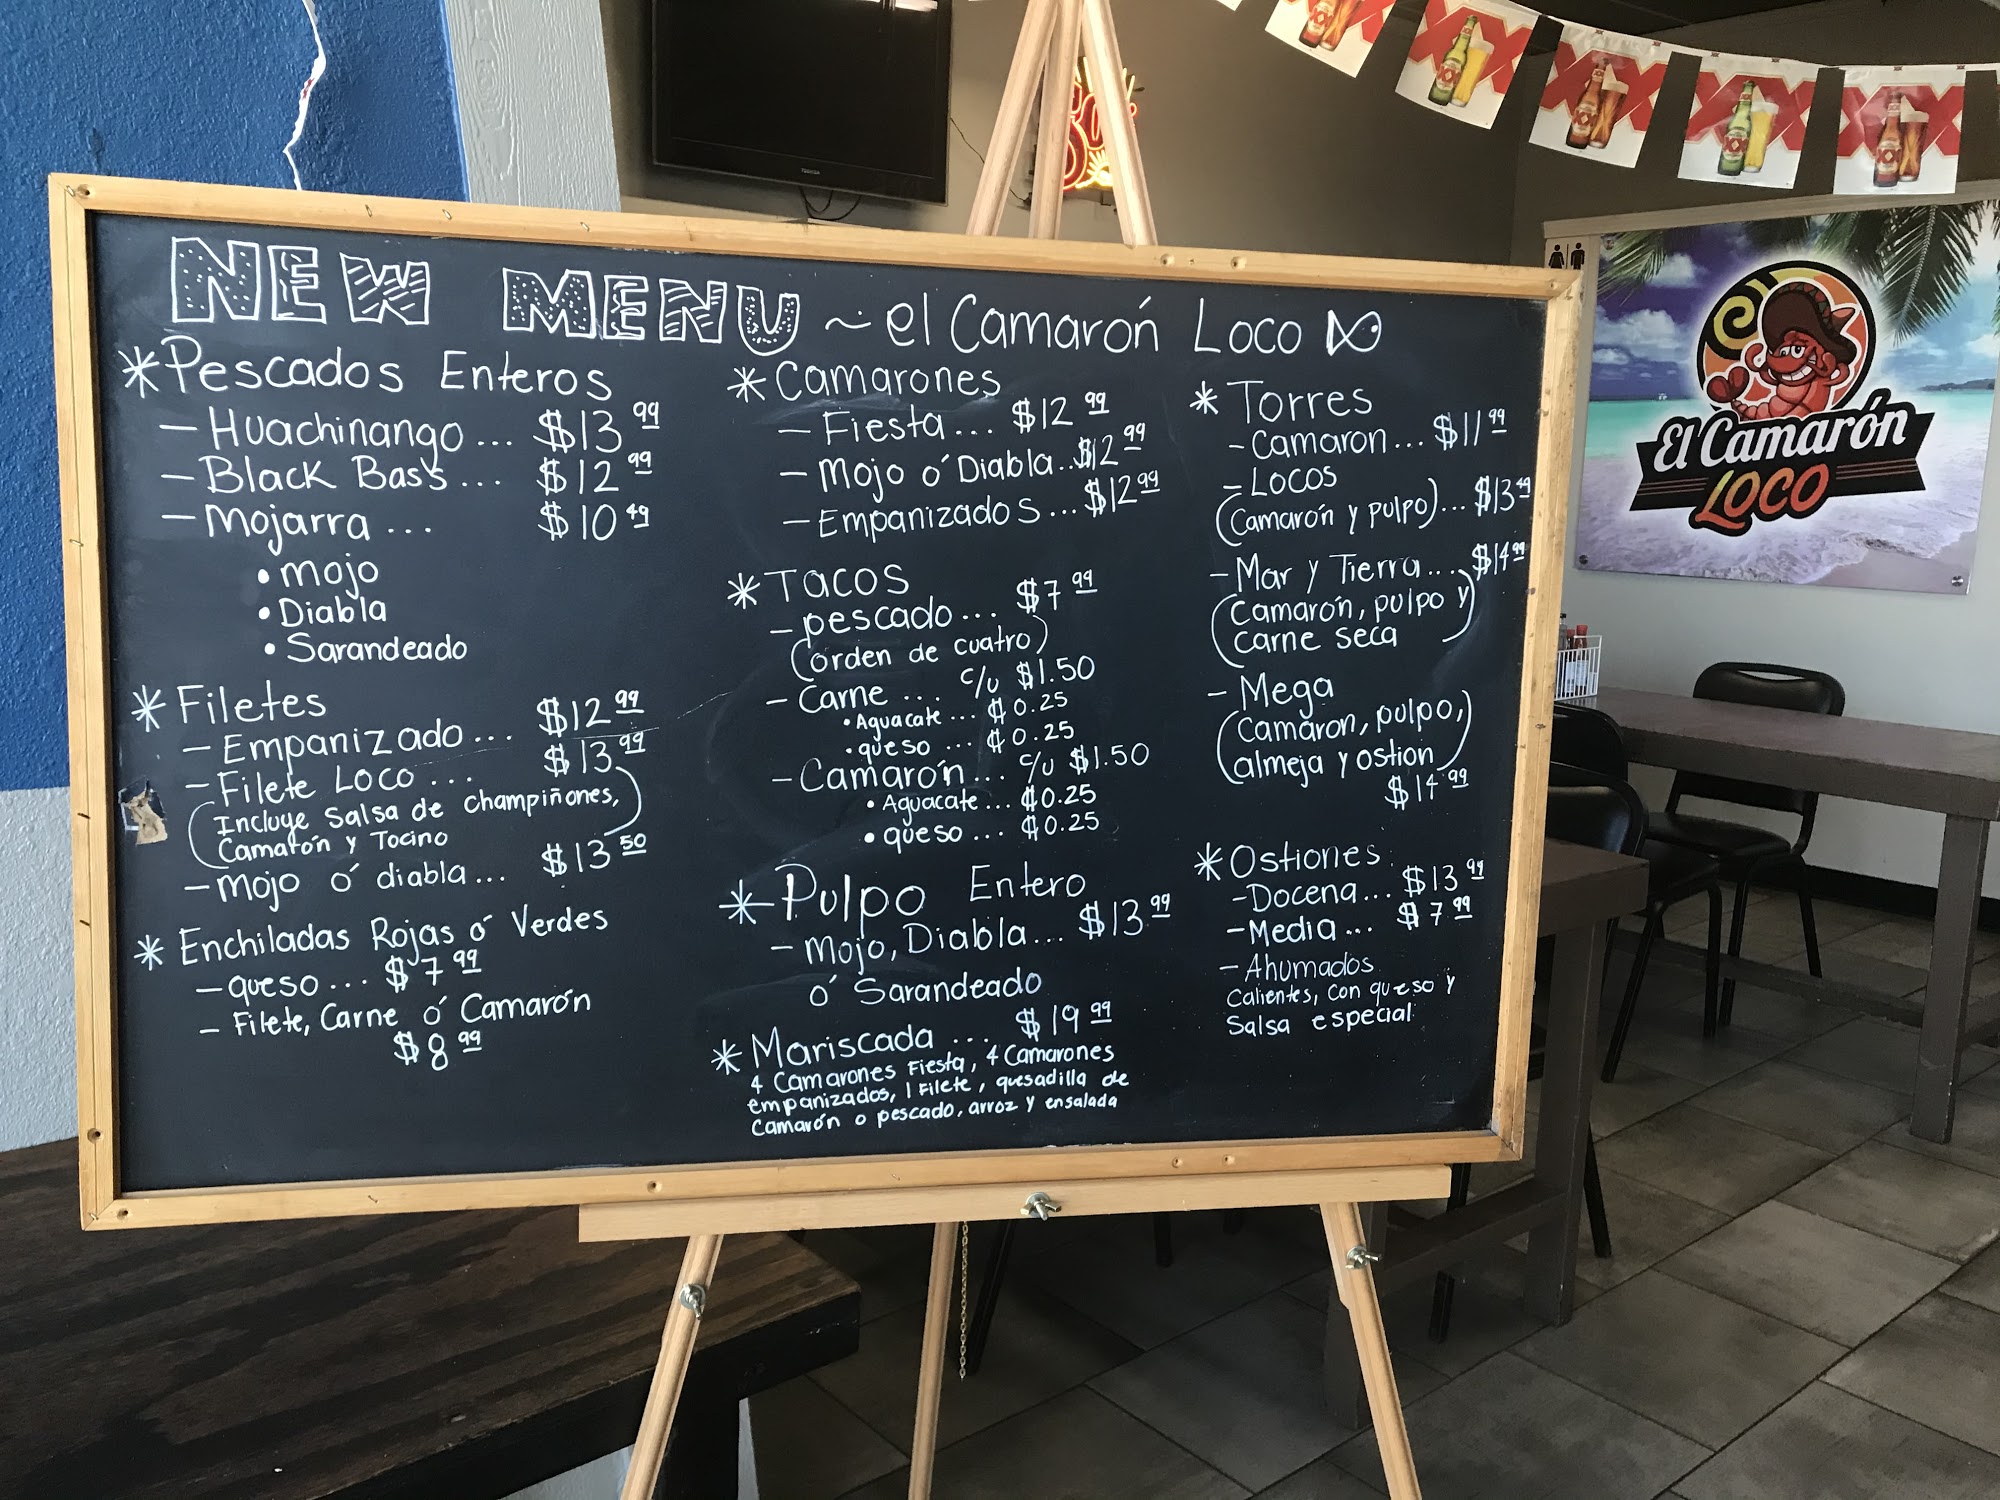 NEW MENU ~ el Camarón Loco
* Pescados Enteros
- Huachinango... $13 99
- Black Bass... $12 99
- Mojarra ... $10 49
• Mojo
• Diabla
• Sarandeado
* Filetes
- Empanizado... $12 99
- Filete Loco ... $13 99
(Incluye Salsa de champiñones,
Camarón y Tocino)
- Mojo ó diabla... $13 50
* Enchiladas Rojas ó Verdes
- queso... $7 99
- Filete, Carne ó Camarón
$8 99
* Camarones
- Fiesta... $12 99
- Mojo ó Diabla..$12 99
- Empanizados...$12 99
* Tacos
- pescado... $7 99
(orden de cuatro)
- Carne ... c/u $1.50
• Aguacate ... $0.25
• queso ... $0.25
- Camarón... c/u $1.50
• Aguacate... $0.25
• queso ... $0.25
* Pulpo Entero
- Mojo, Diabla... $13 99
ó Sarandeado
* Mariscada ... $19 99
4 Camarones Fiesta, 4 Camarones
empanizados, 1 Filete, quesadilla de
Camarón o pescado, arroz y ensalada
* Torres
- Camaron... $11 99
- Locos
(Camarón y pulpo)... $13 49
- Mar y Tierra... $14 99
(Camarón, pulpo y
Carne seca)
- Mega
(Camaron, pulpo,
almeja y ostion)
$14 99
* Ostiones:
- Docena... $13 99
- Media... $7 99
- Ahumados
Calientes, con queso y
Salsa especial
TOSHIBA
XX
XX
XX
XX
XX
El Camarón
LOCO